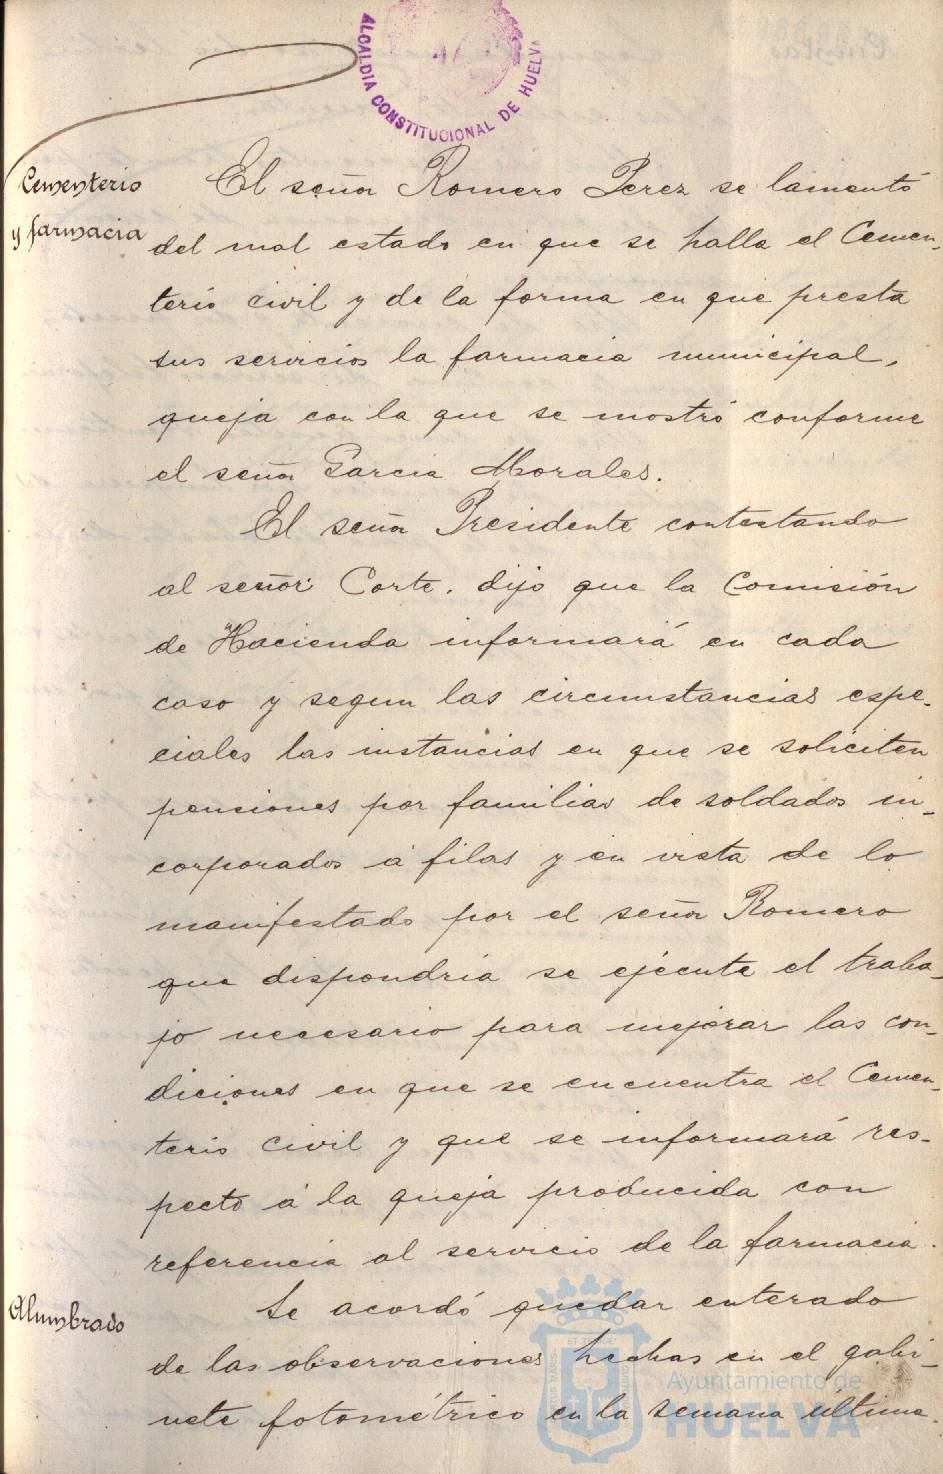 ALCALDIA CONSTITUCIONAL DE HUELVA
Cementerio
y farmacia
El señor Romero Perez se lamentó
del mal estado en que se halla el Cemen-
terio civil y de la forma en que presta
sus servicios la farmacia municipal,
queja con la que se mostró conforme
el señor Garcia Morales.
El señor Presidente contestando
al señor Corte, dijo que la Comisión
de Hacienda informará en cada
caso y segun las circunstancias espe-
ciales las instancias en que se soliciten
pensiones por familias de soldados in-
corporados á filas y en vista de lo
manifestado por el señor Romero
que dispondría se ejecute el traba-
jo necesario para mejorar las con-
diciones en que se encuentra el Cemen-
terio civil y que se informará res-
pecto á la queja producida con
referencia al servicio de la farmacia.
Alumbrado
Se acordó quedar enterado
de las observaciones hechas en el gabi-
nete fotométrico en la semana ultima.
Ayuntamiento de
HUELVA